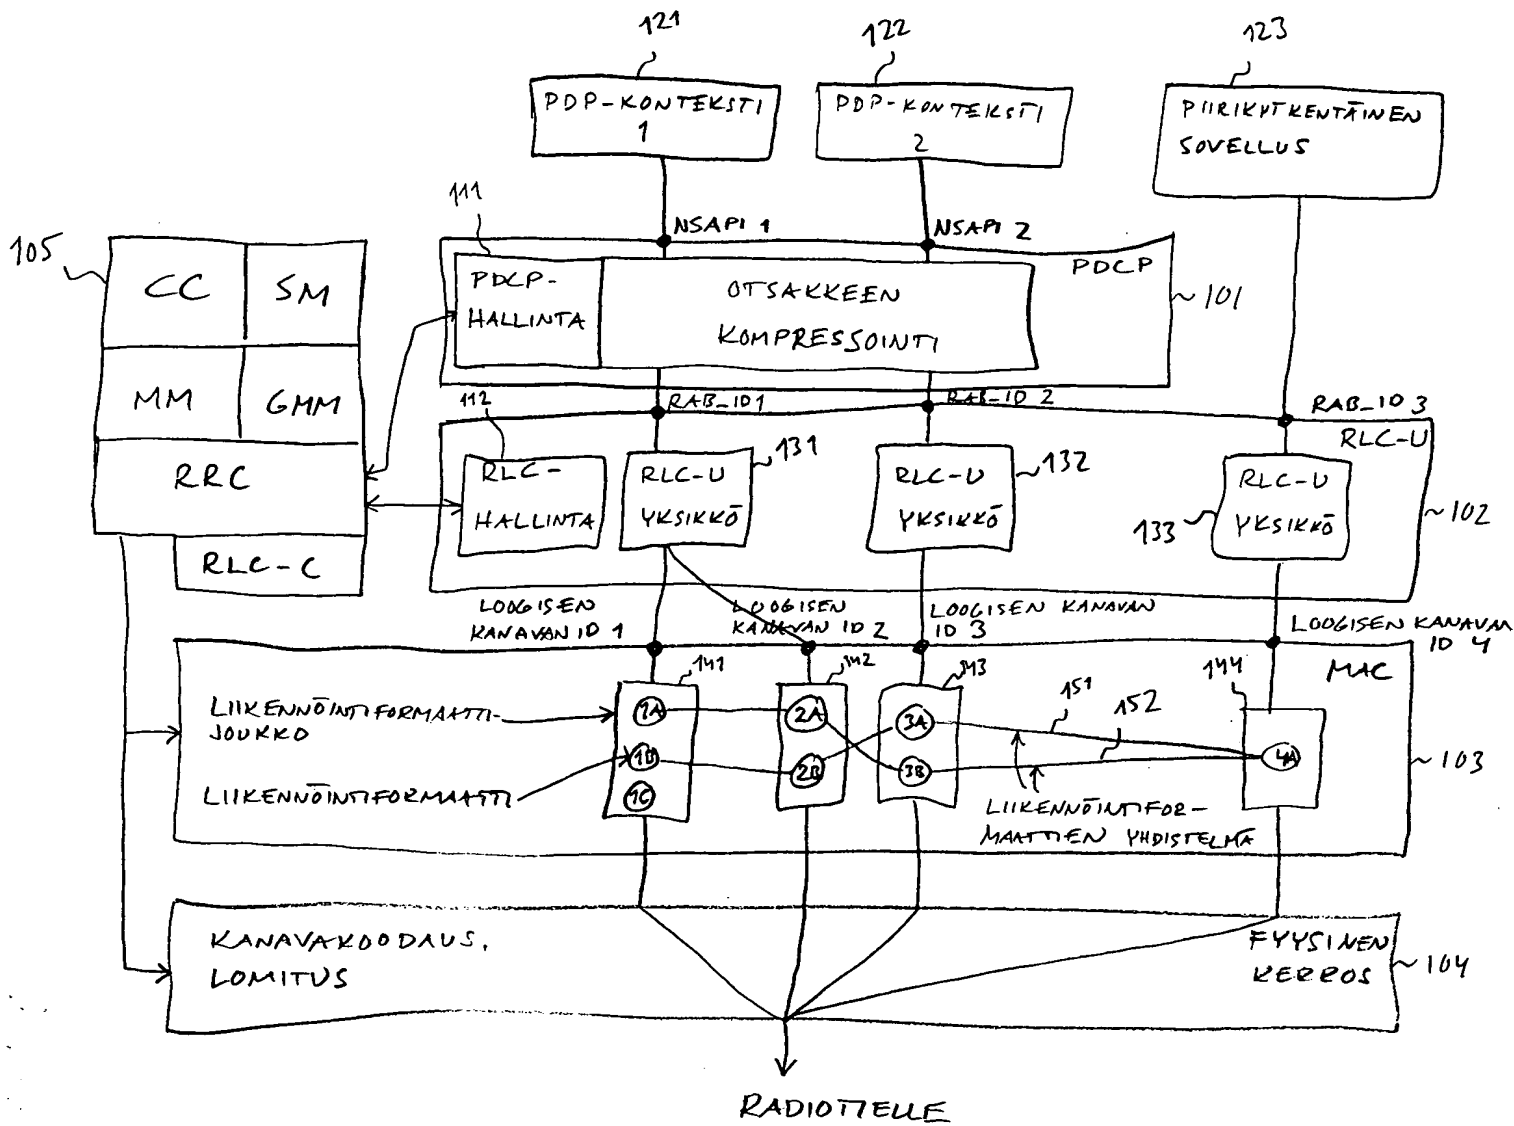 121
122
123
PDP-KONTEKSTI
1
PDP-KONTEKSTI
2
PIIRIKYTKENTÄINEN
SOVELLUS
111
NSAPI 1
NSAPI 2
105
CC
SM
PDCP-
HALLINTA
OTSAKKEEN
KOMPRESSOINTI
PDCP
101
MM
GMM
112
RAB_ID1
RAB_ID 2
RAB_ID 3
RLC-U
RRC
RLC-
HALLINTA
RLC-U
YKSIKKÖ
131
RLC-U
YKSIKKÖ
132
RLC-U
YKSIKKÖ
133
102
RLC-C
LOOGISEN
KANAVAN ID 1
LOOGISEN
KANAVAN ID 2
LOOGISEN KANAVAN
ID 3
LOOGISEN KANAVAN
ID 4
MAC
141
142
143
144
LIIKENNÖINTIFORMAATTI-
JOUKKO
1A
2A
3A
151
152
LIIKENNÖINTIFORMAATTI
1B
2B
3B
4A
103
1C
LIIKENNÖINTIFOR-
MAATTIEN YHDISTELMÄ
KANAVAKOODAUS,
LOMITUS
FYYSINEN
KERROS
104
RADIOTIELLE